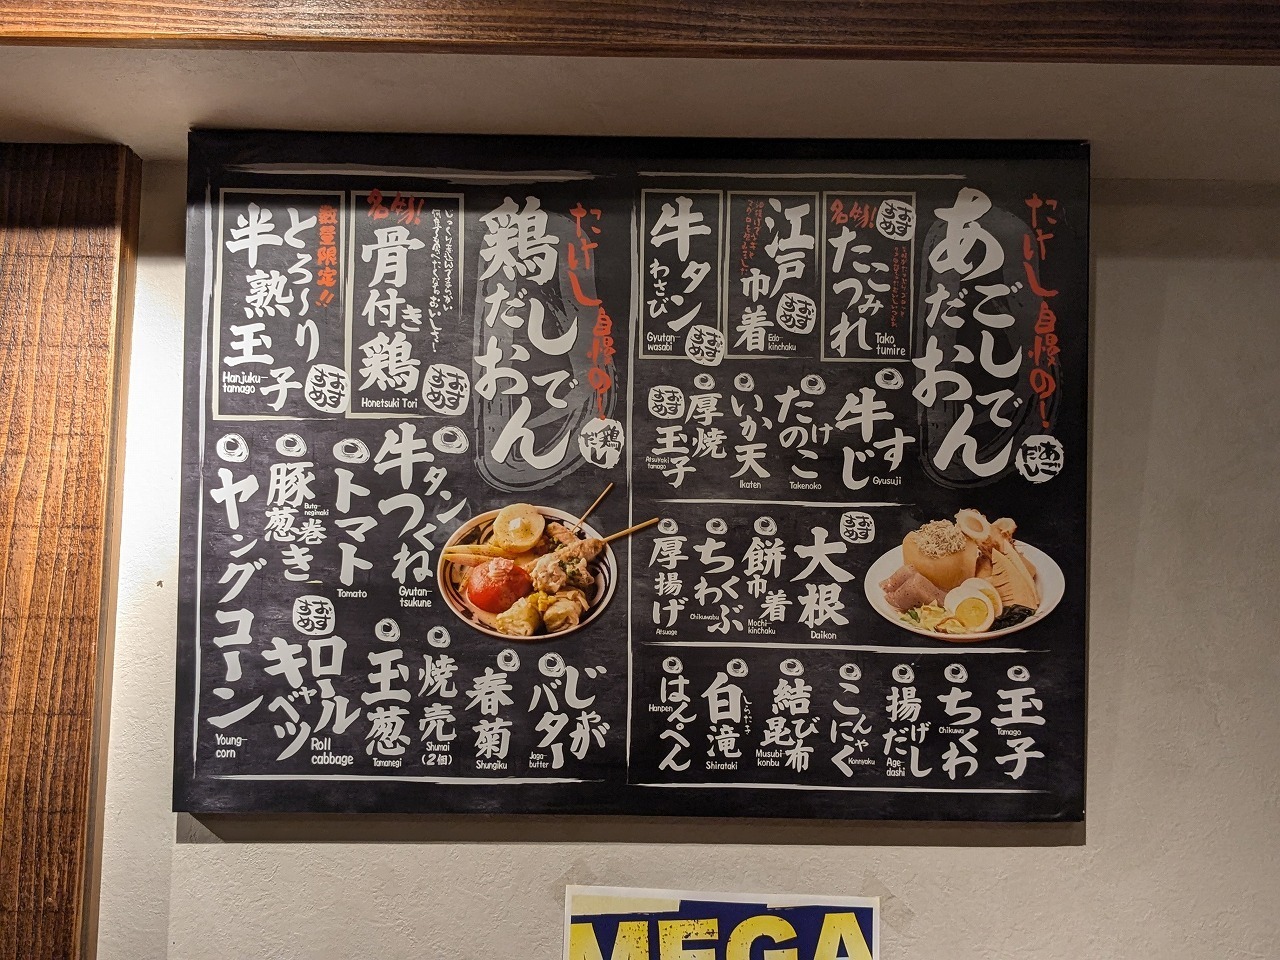 たけし自慢の！
あごだしおでん
あごだし
おすすめ
名物！
たこつみれ
Tako
tumire
江戸巾着
おすすめ
Edo-
kinchaku
牛タン
わさび
Gyutan-
wasabi
おすすめ
牛すじ
Gyusuji
たけのこ
Takenoko
いか天
Ikaten
おすすめ
厚焼玉子
Atsuyaki
tamago
おすすめ
大根
Daikon
餅巾着
Mochi-
kinchaku
ちくわぶ
Chikuwabu
厚揚げ
Atsuage
玉子
Tamago
ちくわ
Chikuwa
揚げだし
Age-
dashi
こんにゃく
Konnyaku
結び昆布
Musubi-
konbu
白滝
しらたき
Shirataki
はんぺん
Hanpen
たけし自慢の！
鶏だしおでん
鶏だし
名物！
骨付き鶏
Honetsuki Tori
おすすめ
数量限定！！
とろ〜り
半熟玉子
Hanjuku-
tamago
おすすめ
牛タンつくね
Gyutan-
tsukune
トマト
Tomato
豚葱巻き
Buta-
negimaki
ヤングコーン
Young-
corn
じゃが
バター
Jaga-
butter
春菊
Shungiku
焼売
Shumai
(2個)
玉葱
Tamanegi
おすすめ
ロール
キャベツ
Roll
cabbage
MEGA